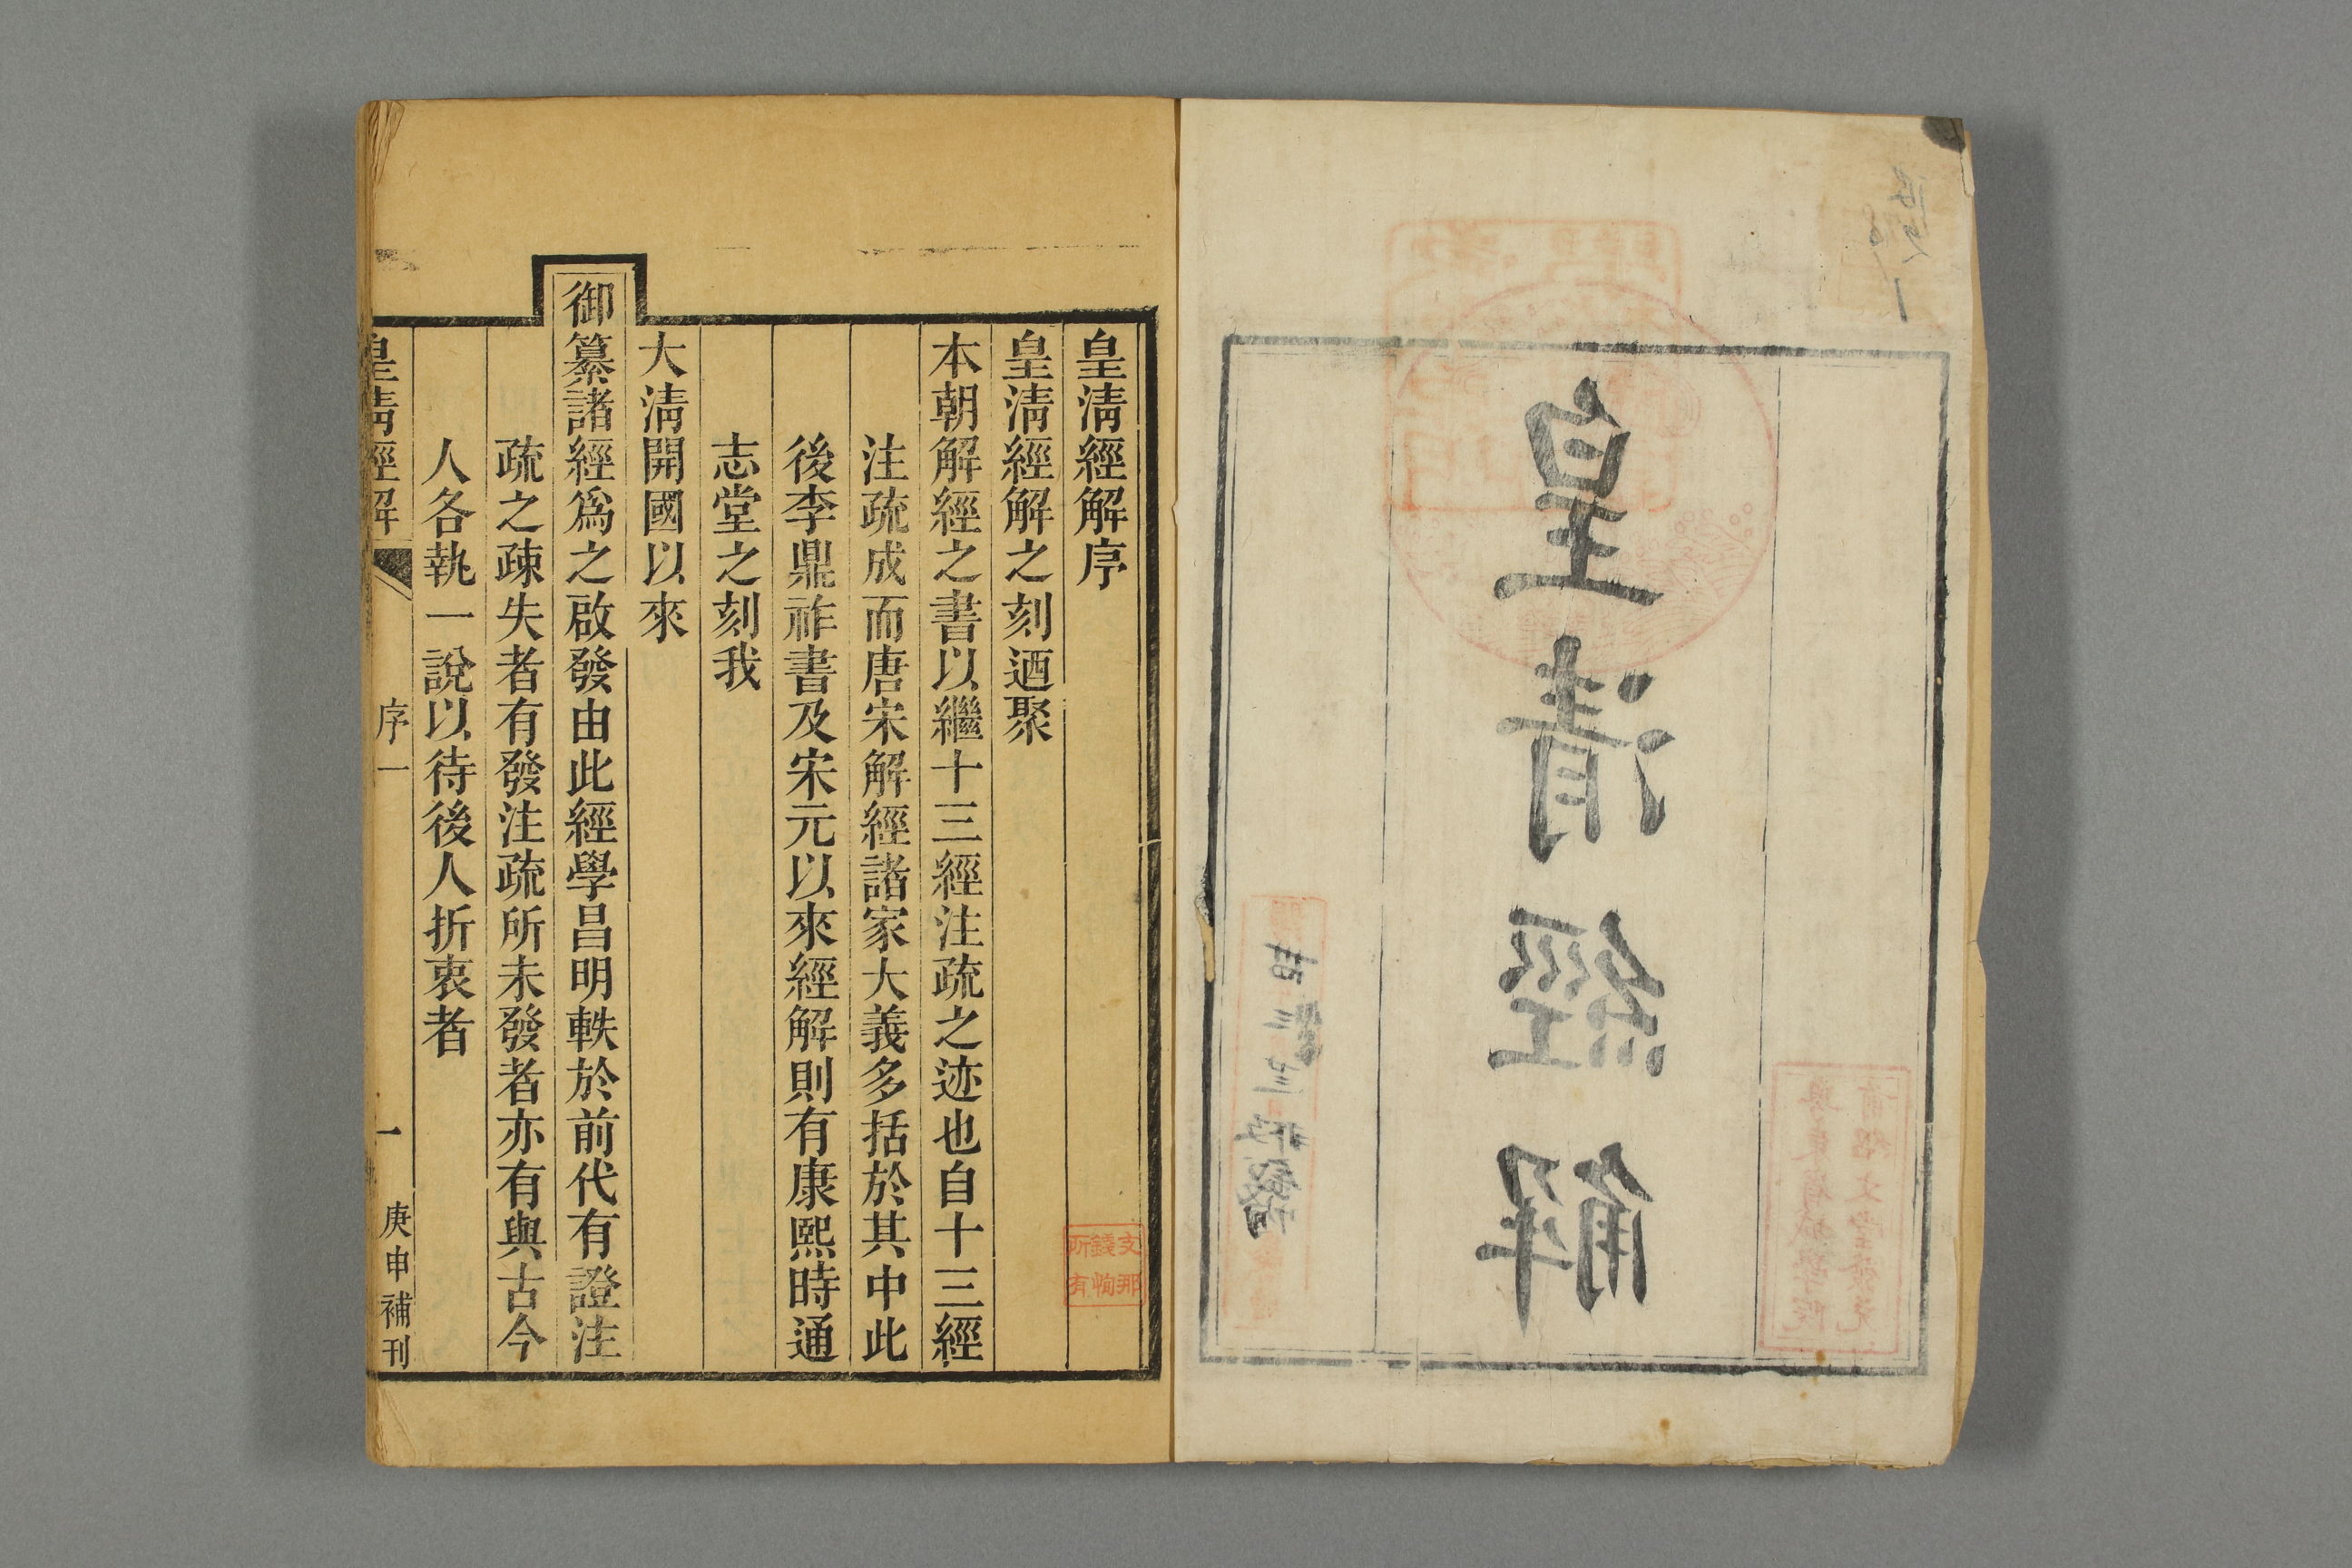 皇清經解
皇清經解序
皇清經解之刻迺聚
本朝解經之書以繼十三經注疏之迹也自十三經
注疏成而唐宋解經諸家大義多括於其中此
後李鼎祚書及宋元以來經解則有康熙時通
志堂之刻我
大淸開國以來
御纂諸經爲之啟發由此經學昌明軼於前代有證注
疏之疎失者有發注疏所未發者亦有與古今
人各執一說以待後人折衷者
皇清經解
序一
一
庚申補刊
支那
錢恂
所有